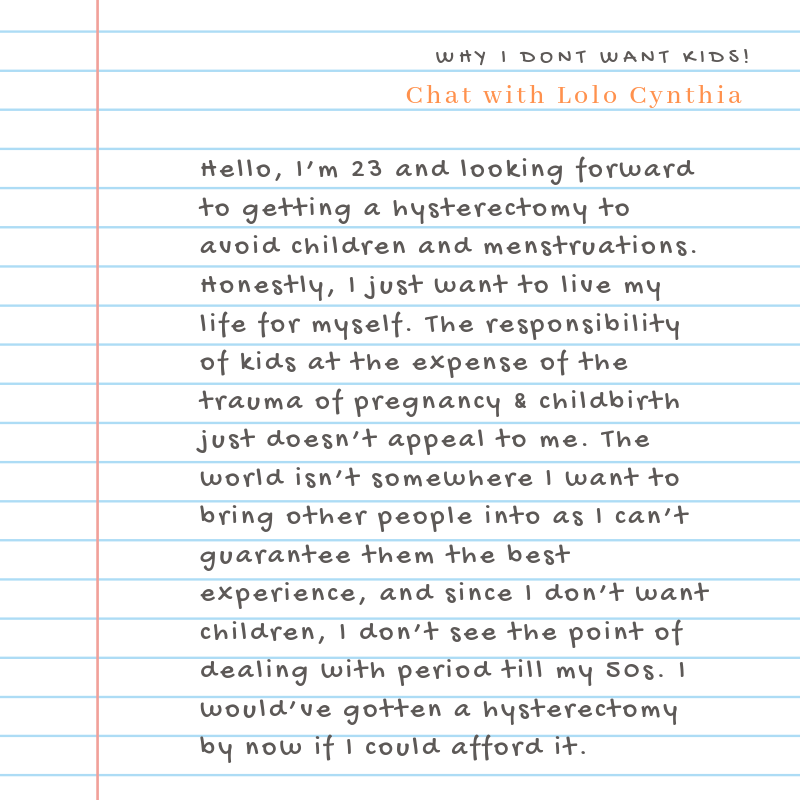 WHY I DONT WANT KIDS!
Chat with Lolo Cynthia
Hello, I'm 23 and looking forward
to getting a hysterectomy to
avoid children and menstruations.
Honestly, I just want to live my
life for myself. The responsibility
of kids at the expense of the
trauma of pregnancy & childbirth
just doesn't appeal to me. The
world isn't somewhere I want to
bring other people into as I can't
guarantee them the best
experience, and since I don't want
children, I don't see the point of
dealing with period till my 50s. I
would've gotten a hysterectomy
by now if I could afford it.